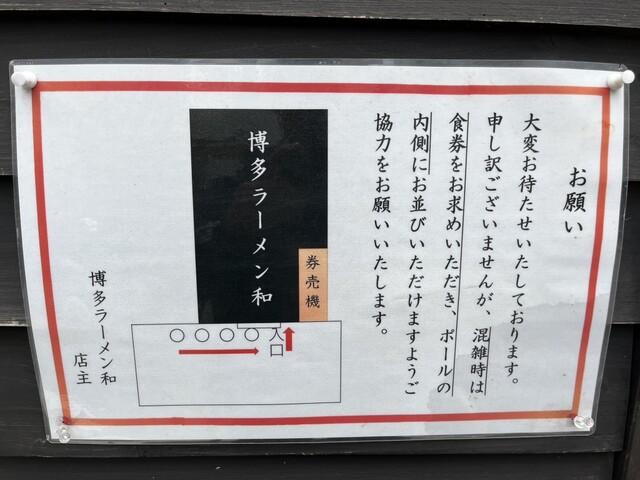 お願い
大変お待たせいたしております。
申し訳ございませんが、混雑時は
食券をお求めいただき、ポールの
内側にお並びいただけますようご
協力をお願いいたします。
博多ラーメン和
券売機
入口
〇〇〇〇
博多ラーメン和
店主